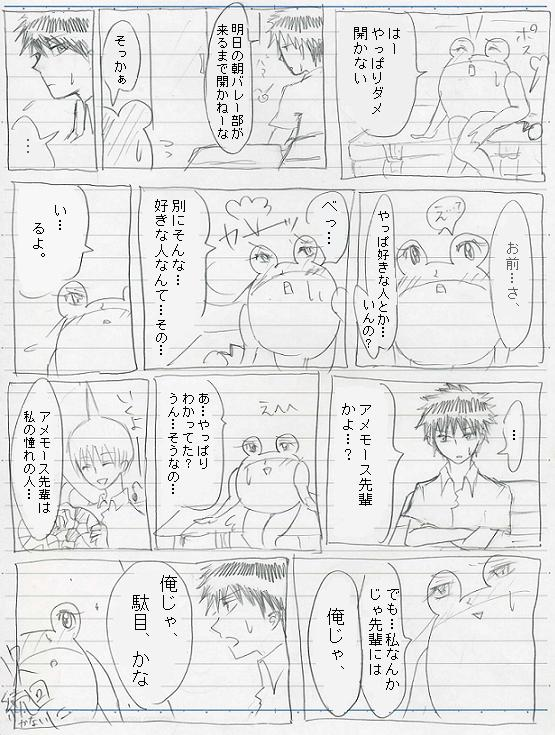 はー
やっぱりダメ
開かない
ポスッ
明日の朝バレー部が
来るまで開かねーな
そっかぁ
…
お前…さ、
えっ…て
やっぱ好きな人とか…
いんの?
べっ…
別にそんな…
好きな人なんて…その…
い…
るよ。
…
アメモース先輩
かよ…?
えへへ
あ…やっぱり
わかってた?
うん…そうなの…
アメモース先輩は
私の憧れの人…
でも…私なんか
じゃ先輩には
俺じゃ、
俺じゃ、
駄目、かな